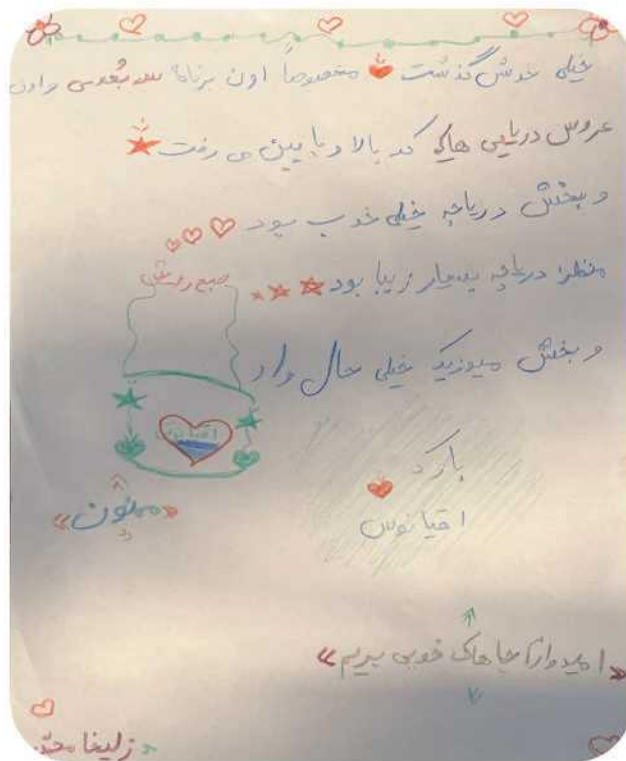 خیلی خوش گذشت مخصوصاً اون برنامه سه بُعدی و اون
عروس دریایی های که بالا و پایین می رفت
و بخش دریاچه خیلی خوب بود
منظره دریاچه بسیار زیبا بود
و بخش میوزیک خیلی حال داد
اقیانوس
پارک
اقیانوس
«ممنون»
«امیدوارم جا های خوبی بریم»
زلیخا